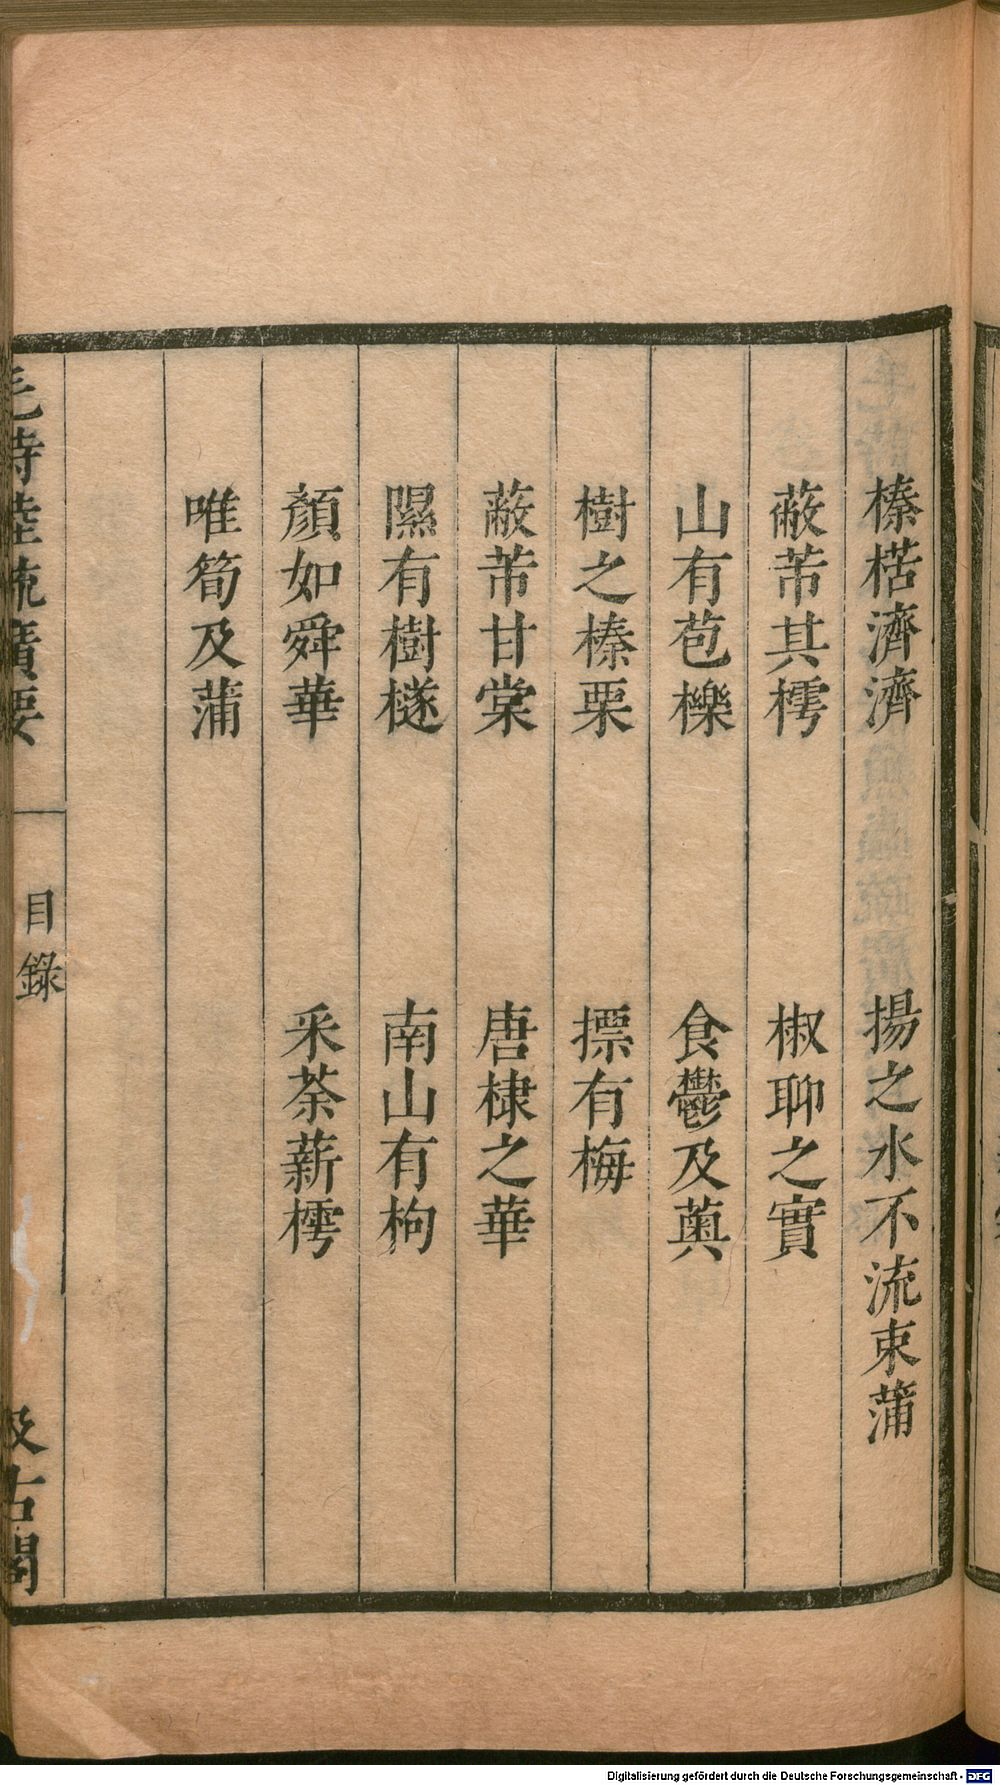 榛楛濟濟　揚之水不流束蒲
蔽芾其樗　椒聊之實
山有苞櫟　食鬱及薁
樹之榛栗　摽有梅
蔽芾甘棠　唐棣之華
隰有樹檖　南山有枸
顏如舜華　采荼薪樗
唯筍及蒲
毛詩陸疏廣要　目錄　汲古閣
Digitalisierung gefördert durch die Deutsche Forschungsgemeinschaft - DFG